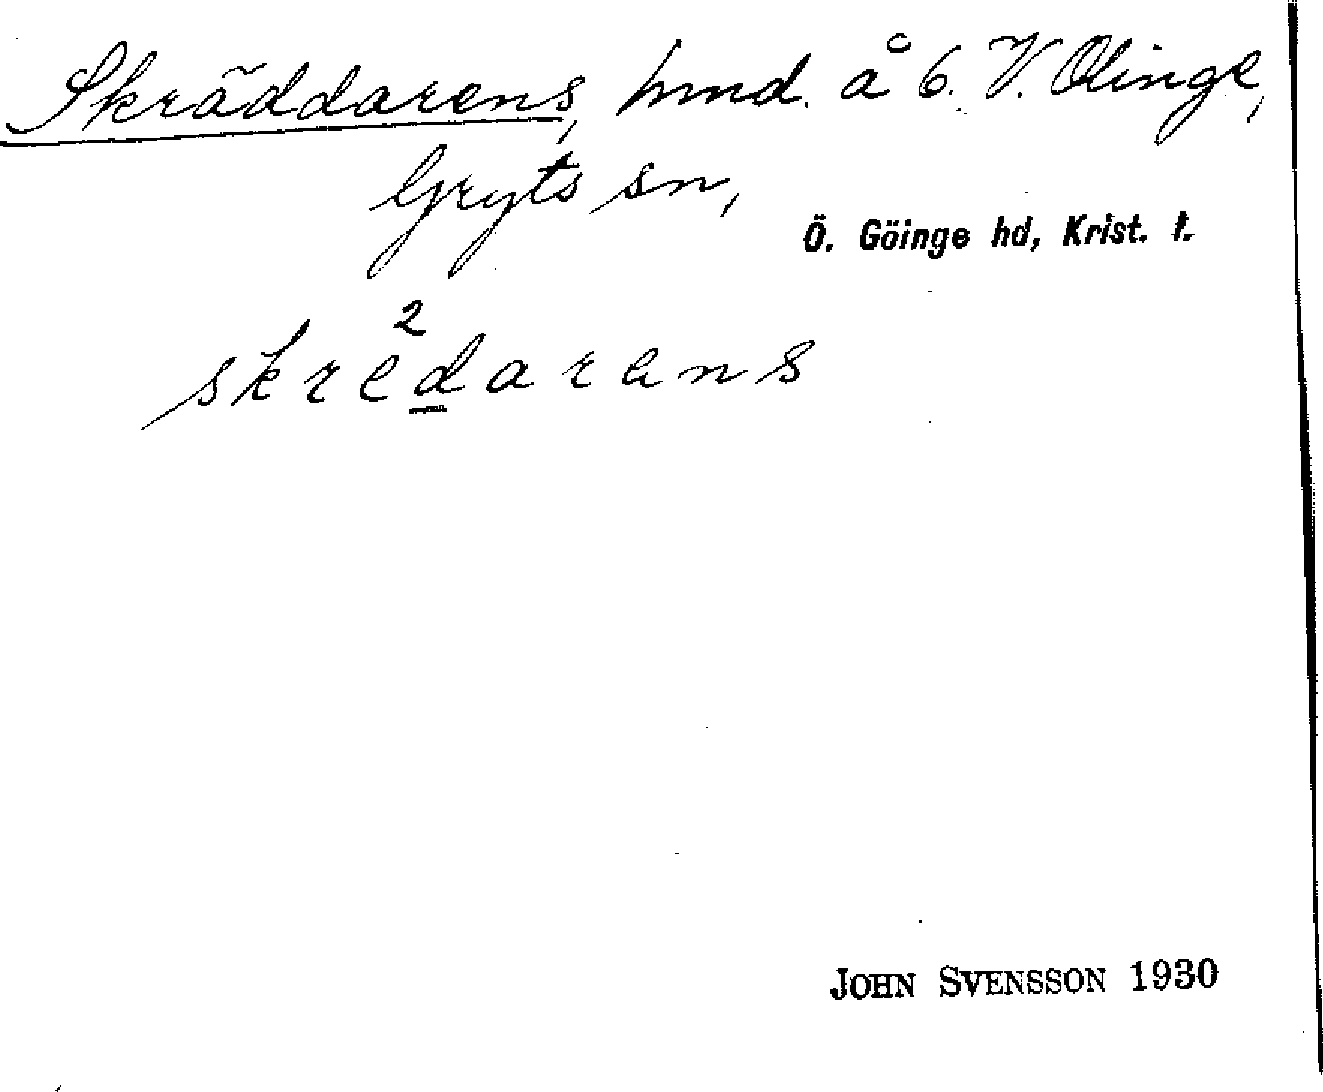 Skräddarens, hmd. å 6. V. Olinge,
Gryts sn,
Ö. Göinge hd, Krist. l.
2
skredarens
JOHN SVENSSON 1930